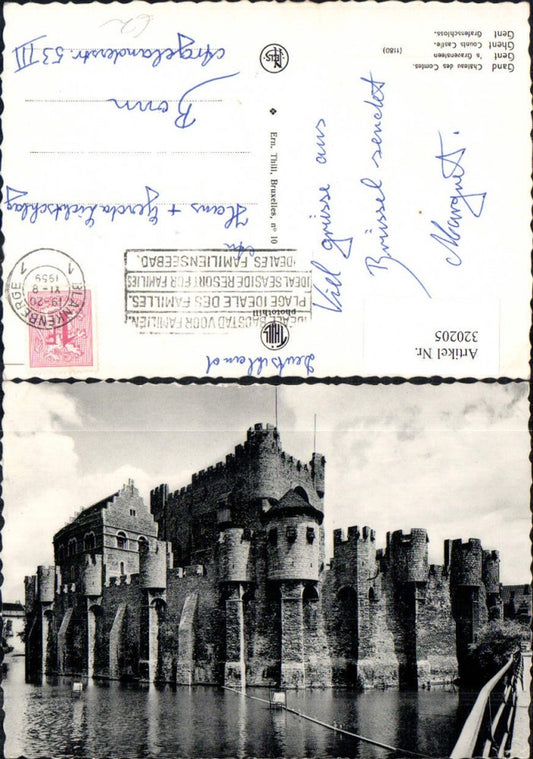 Gand Château des Comtes.
Gent 's Gravensteen
Ghent Counts Castle.
Gent Grafenschloss.
(1180)
NELS
Ern. Thill, Bruxelles, n° 10
THILL
photothill
Viel grüsse aus
Brüssel sendet
Margret.
Hans + Gerda Lichtschlag
Bonn
Argelanderstr. 53 III
Deutschland
BLANKENBERGE
19-20
1959
1 1
1F
IDEALE BADSTAD VOOR FAMILIEN.
PLAGE IDEALE DES FAMILLES.
IDEAL SEASIDE RESORT FOR FAMILIES
IDEALES FAMILIENSEEBAD.
Artikel Nr.
320205